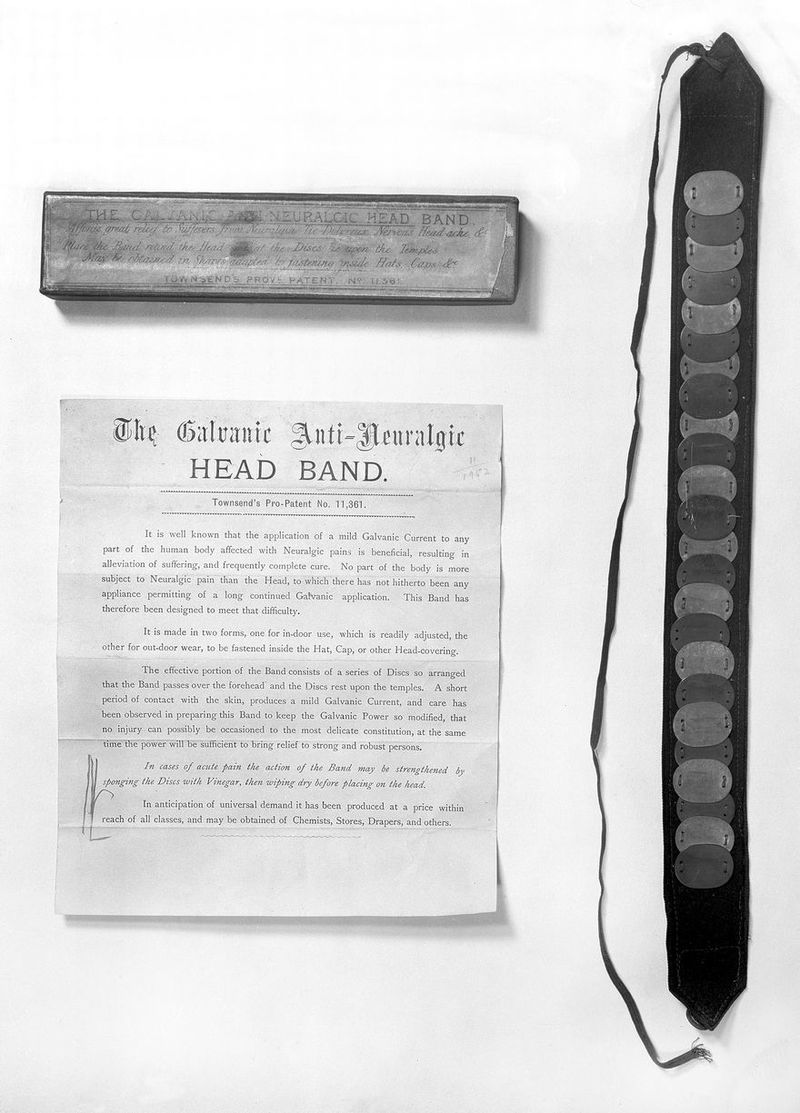 THE GALVANIC ANTI NEURALGIC HEAD BAND
Affords great relief to Sufferers from Neuralgia Tic Doloreux, Nervous Head-ache &c
Place the Band round the Head so that the Discs lie upon the Temples
May be obtained in Shapes adapted to fastening inside Hats, Caps, &c
TOWNSEND'S PROVL PATENT. No 11361
The Galvanic Anti-Neuralgic
HEAD BAND.
Townsend's Pro-Patent No. 11,361.
It is well known that the application of a mild Galvanic Current to any
part of the human body affected with Neuralgic pains is beneficial, resulting in
alleviation of suffering, and frequently complete cure. No part of the body is more
subject to Neuralgic pain than the Head, to which there has not hitherto been any
appliance permitting of a long continued Galvanic application. This Band has
therefore been designed to meet that difficulty.
It is made in two forms, one for in-door use, which is readily adjusted, the
other for out-door wear, to be fastened inside the Hat, Cap, or other Head-covering.
The effective portion of the Band consists of a series of Discs so arranged
that the Band passes over the forehead and the Discs rest upon the temples. A short
period of contact with the skin, produces a mild Galvanic Current, and care has
been observed in preparing this Band to keep the Galvanic Power so modified, that
no injury can possibly be occasioned to the most delicate constitution, at the same
time the power will be sufficient to bring relief to strong and robust persons.
In cases of acute pain the action of the Band may be strengthened by
sponging the Discs with Vinegar, then wiping dry before placing on the head.
In anticipation of universal demand it has been produced at a price within
reach of all classes, and may be obtained of Chemists, Stores, Drapers, and others.